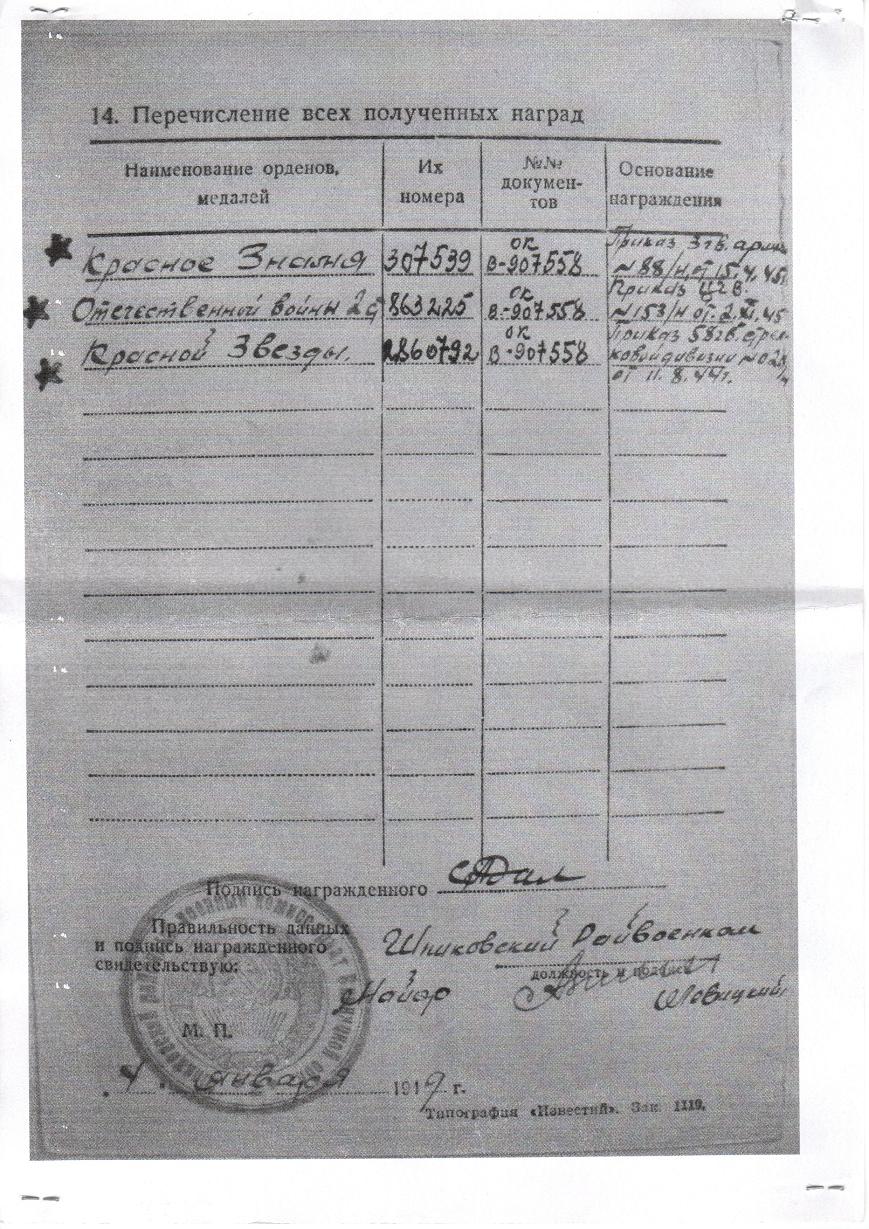 14. Перечисление всех полученных наград
Наименование орденов, медалей
Их номера
№№ докумен-тов
Основание награждения
Красное Знамя 307539 ОК В-907558 Приказ 3 гв. армии №88/н от 15.4.45
Отечественной Войны 2 ст 863225 ОК В-907558 Приказ ЦГВ №153/н от 2.XI.45
Красной Звезды. 2860792 ОК В-907558 Приказ 58 гв. стрел-ковой дивизии от 11.8.44г.
Подпись награжденного
Правильность данных
и подпись награжденного
свидетельствую:
Шпиковский Райвоенком
должность и подпись
Майор
М. П.
4 января 1947 г.
Типография «Известий». Зак. 1119.